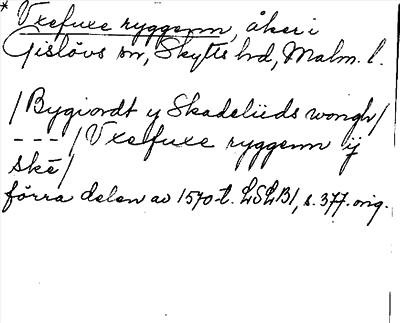 * Vxefuxe ryggenn, åker i
Gislövs sn, Skytts hd, Malm. l.
/Bygiordt y Skadeliids wongh/
--- /Vxefuxe ryggenn ij
skē/
förra delen av 1570-t. LSLB1, s. 377. orig.